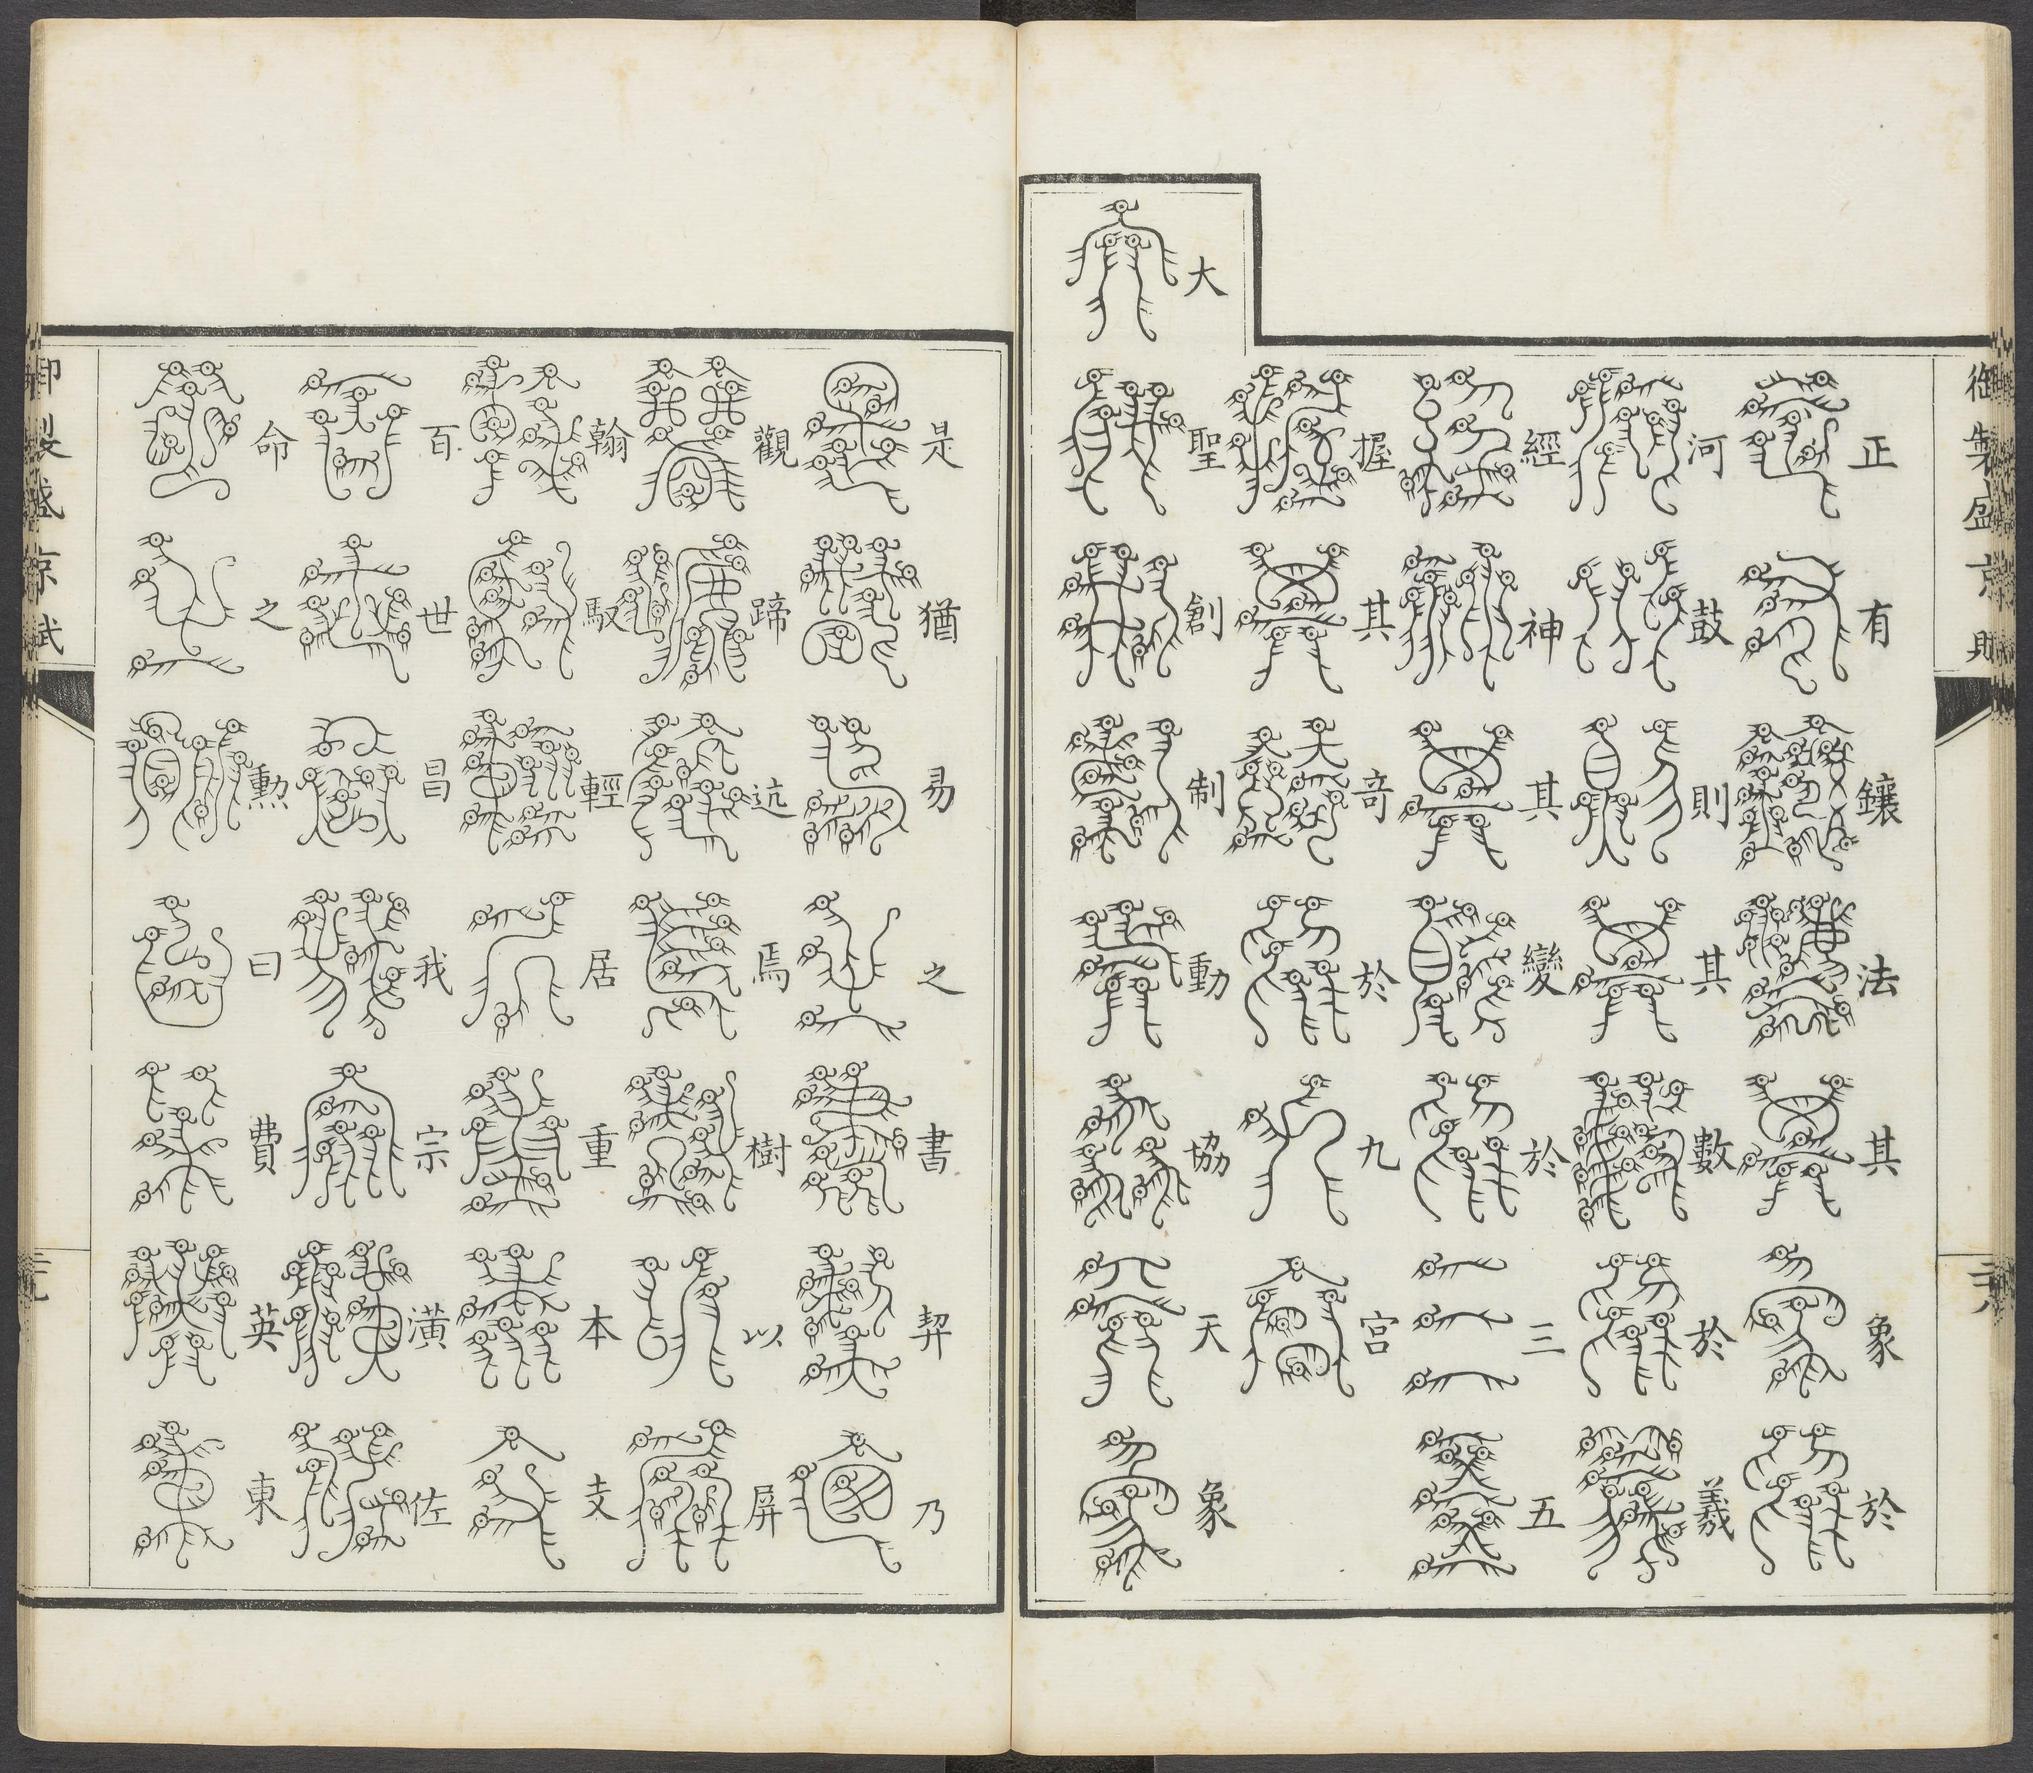 御製盛京賦
正有鑲法其象於
河鼓則其數於羲
經神其變於三五
握其奇於九宮
大聖創制動協天象
是猶易之書契乃
觀蹏迒焉樹以屏
翰馭輕居重本支
百世昌我宗潢佐
命之勳曰費英東
御製盛京賦